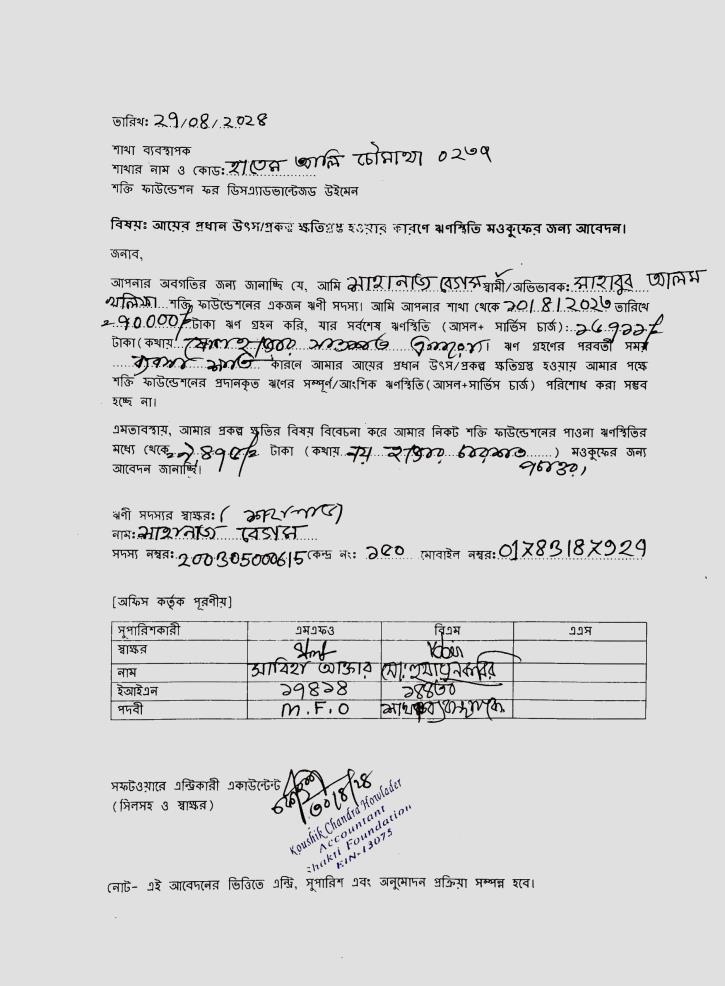 তারিখ: 29/08/2028
শাখা ব্যবস্থাপক
শাখার নাম ও কোড: হাতেম আলি চৌমাথা ০২৩৭
শক্তি ফাউন্ডেশন ফর ডিসএ্যাডভান্টেজড উইমেন
বিষয়: আয়ের প্রধান উৎস/প্রকল্প ক্ষতিগ্রস্ত হওয়ার কারণে ঋণস্থিতি মওকুফের জন্য আবেদন।
জনাব,
আপনার অবগতির জন্য জানাচ্ছি যে, আমি সাহানাজ বেগম স্বামী/অভিভাবক: মাহাবুব আলম
শক্তি ফাউন্ডেশনের একজন ঋণী সদস্য। আমি আপনার শাখা থেকে তারিখে
টাকা ঋণ গ্রহন করি, যার সর্বশেষ ঋণস্থিতি (আসল+ সার্ভিস চার্জ):
টাকা(কথায় ঋণ গ্রহণের পরবর্তী সময়
কারনে আমার আয়ের প্রধান উৎস/প্রকল্প ক্ষতিগ্রস্ত হওয়ায় আমার পক্ষে
শক্তি ফাউন্ডেশনের প্রদানকৃত ঋণের সম্পূর্ণ/আংশিক ঋণস্থিতি(আসল+সার্ভিস চার্জ) পরিশোধ করা সম্ভব
হচ্ছে না।
এমতাবস্থায়, আমার প্রকল্প ক্ষতির বিষয় বিবেচনা করে আমার নিকট শক্তি ফাউন্ডেশনের পাওনা ঋণস্থিতির
মধ্যে থেকে টাকা (কথায় নয় হাজার ) মওকুফের জন্য
আবেদন জানাচ্ছি।
ঋণী সদস্যর স্বাক্ষর:
নাম: সাহানাজ বেগম
সদস্য নম্বর: 20030500615 কেন্দ্র নং: ১৫০ মোবাইল নম্বর: 01783187929
[অফিস কর্তৃক পূরণীয়]
সুপারিশকারী এমএফও বিএম এএস
স্বাক্ষর
নাম সাবিহা আক্তার মো: হুমায়ুন কবির
ইআইএন ১৭৪১৪
পদবী M.F.O শাখা ব্যবস্থাপক
সফটওয়ারে এন্ট্রিকারী একাউন্টেন্ট
(সিলসহ ও স্বাক্ষর)
Koushik Chandra Howlader
Accountant
Shakti Foundation
EIN-13075
নোট- এই আবেদনের ভিত্তিতে এন্ট্রি, সুপারিশ এবং অনুমোদন প্রক্রিয়া সম্পন্ন হবে।